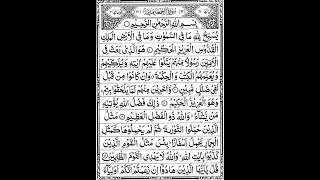 بِسْمِ اللهِ الرَّحْمٰنِ الرَّحِيْمِ
يُسَبِّحُ لِلّٰهِ مَا فِي السَّمٰوٰتِ وَمَا فِي الْاَرْضِ الْمَلِكِ
الْقُدُّوْسِ الْعَزِيْزِ الْحَكِيْمِ ۝ هُوَ الَّذِيْ بَعَثَ فِي
الْاُمِّيّٖنَ رَسُوْلًا مِّنْهُمْ يَتْلُوْا عَلَيْهِمْ اٰيٰتِهٖ وَيُزَكِّيْهِمْ
وَيُعَلِّمُهُمُ الْكِتٰبَ وَالْحِكْمَةَ وَاِنْ كَانُوْا مِنْ قَبْلُ
لَفِيْ ضَلٰلٍ مُّبِيْنٍ ۝ وَّاٰخَرِيْنَ مِنْهُمْ لَمَّا يَلْحَقُوْا بِهِمْ
وَهُوَ الْعَزِيْزُ الْحَكِيْمُ ۝ ذٰلِكَ فَضْلُ اللهِ يُؤْتِيْهِ
مَنْ يَّشَآءُ وَاللهُ ذُو الْفَضْلِ الْعَظِيْمِ ۝ مَثَلُ
الَّذِيْنَ حُمِّلُوا التَّوْرٰىةَ ثُمَّ لَمْ يَحْمِلُوْهَا كَمَثَلِ
الْحِمَارِ يَحْمِلُ اَسْفَارًا بِئْسَ مَثَلُ الْقَوْمِ الَّذِيْنَ
كَذَّبُوْا بِاٰيٰتِ اللهِ وَاللهُ لَا يَهْدِي الْقَوْمَ الظّٰلِمِيْنَ ۝
قُلْ يٰٓاَيُّهَا الَّذِيْنَ هَادُوْٓا اِنْ زَعَمْتُمْ اَنَّكُمْ اَوْلِيَآءُ